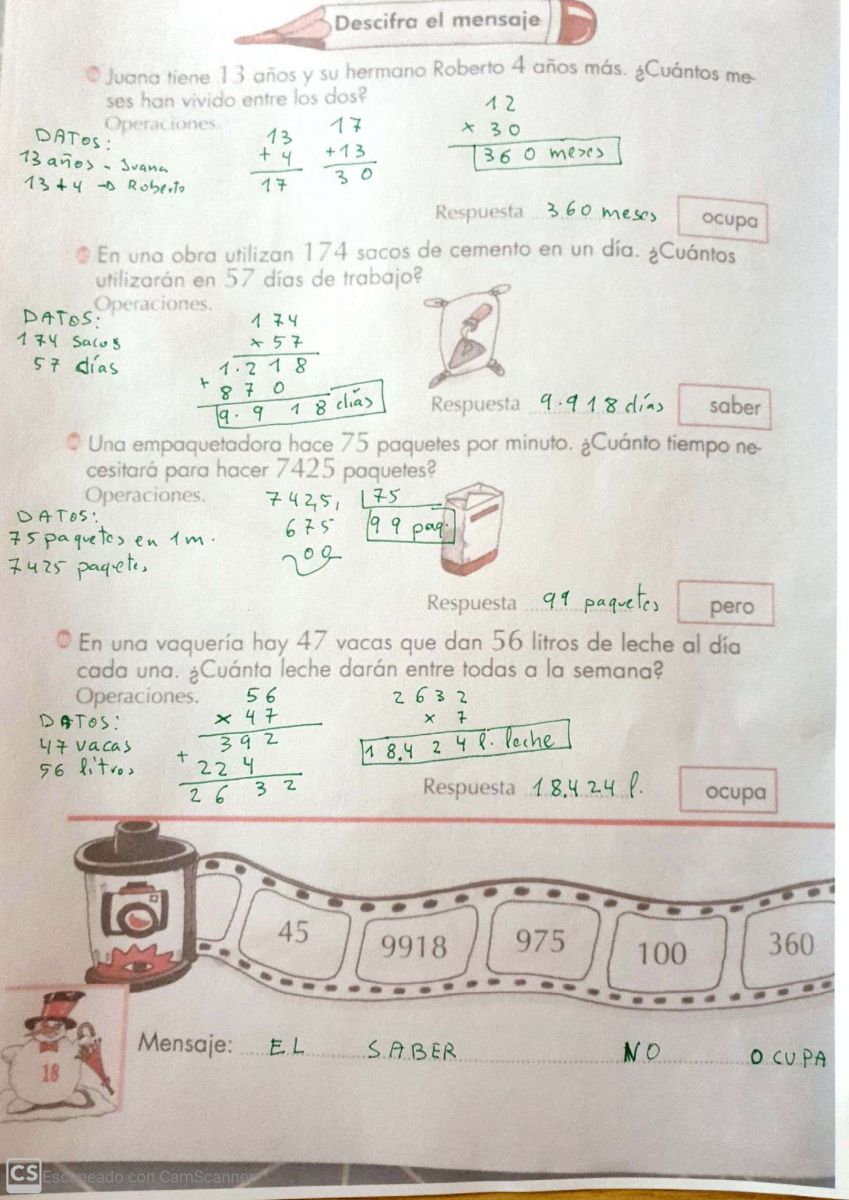 Descifra el mensaje
Juana tiene 13 años y su hermano Roberto 4 años más. ¿Cuántos me-
ses han vivido entre los dos?
Operaciones.
DATOS:
13 años - Juana
13 + 4 → Roberto
13
+ 4
17
17
+13
30
12
× 30
360 meses
Respuesta 360 meses
ocupa
En una obra utilizan 174 sacos de cemento en un día. ¿Cuántos
utilizarán en 57 días de trabajo?
Operaciones.
DATOS:
174 sacos
57 días
174
× 57
1.218
+ 870
9.918 días
Respuesta 9.918 días
saber
Una empaquetadora hace 75 paquetes por minuto. ¿Cuánto tiempo ne-
cesitará para hacer 7425 paquetes?
Operaciones.
DATOS:
75 paquetes en 1m.
7425 paquetes
742,5, 75
675 99 paq.
00
Respuesta 99 paquetes
pero
En una vaquería hay 47 vacas que dan 56 litros de leche al día
cada una. ¿Cuánta leche darán entre todas a la semana?
Operaciones.
DATOS:
47 vacas
56 litros
56
× 47
392
+ 224
2632
2632
× 7
18.424 l. leche
Respuesta 18.424 l.
ocupa
45 9918 975 100 360
Mensaje: EL SABER NO OCUPA
18
CS Escaneado con CamScanner